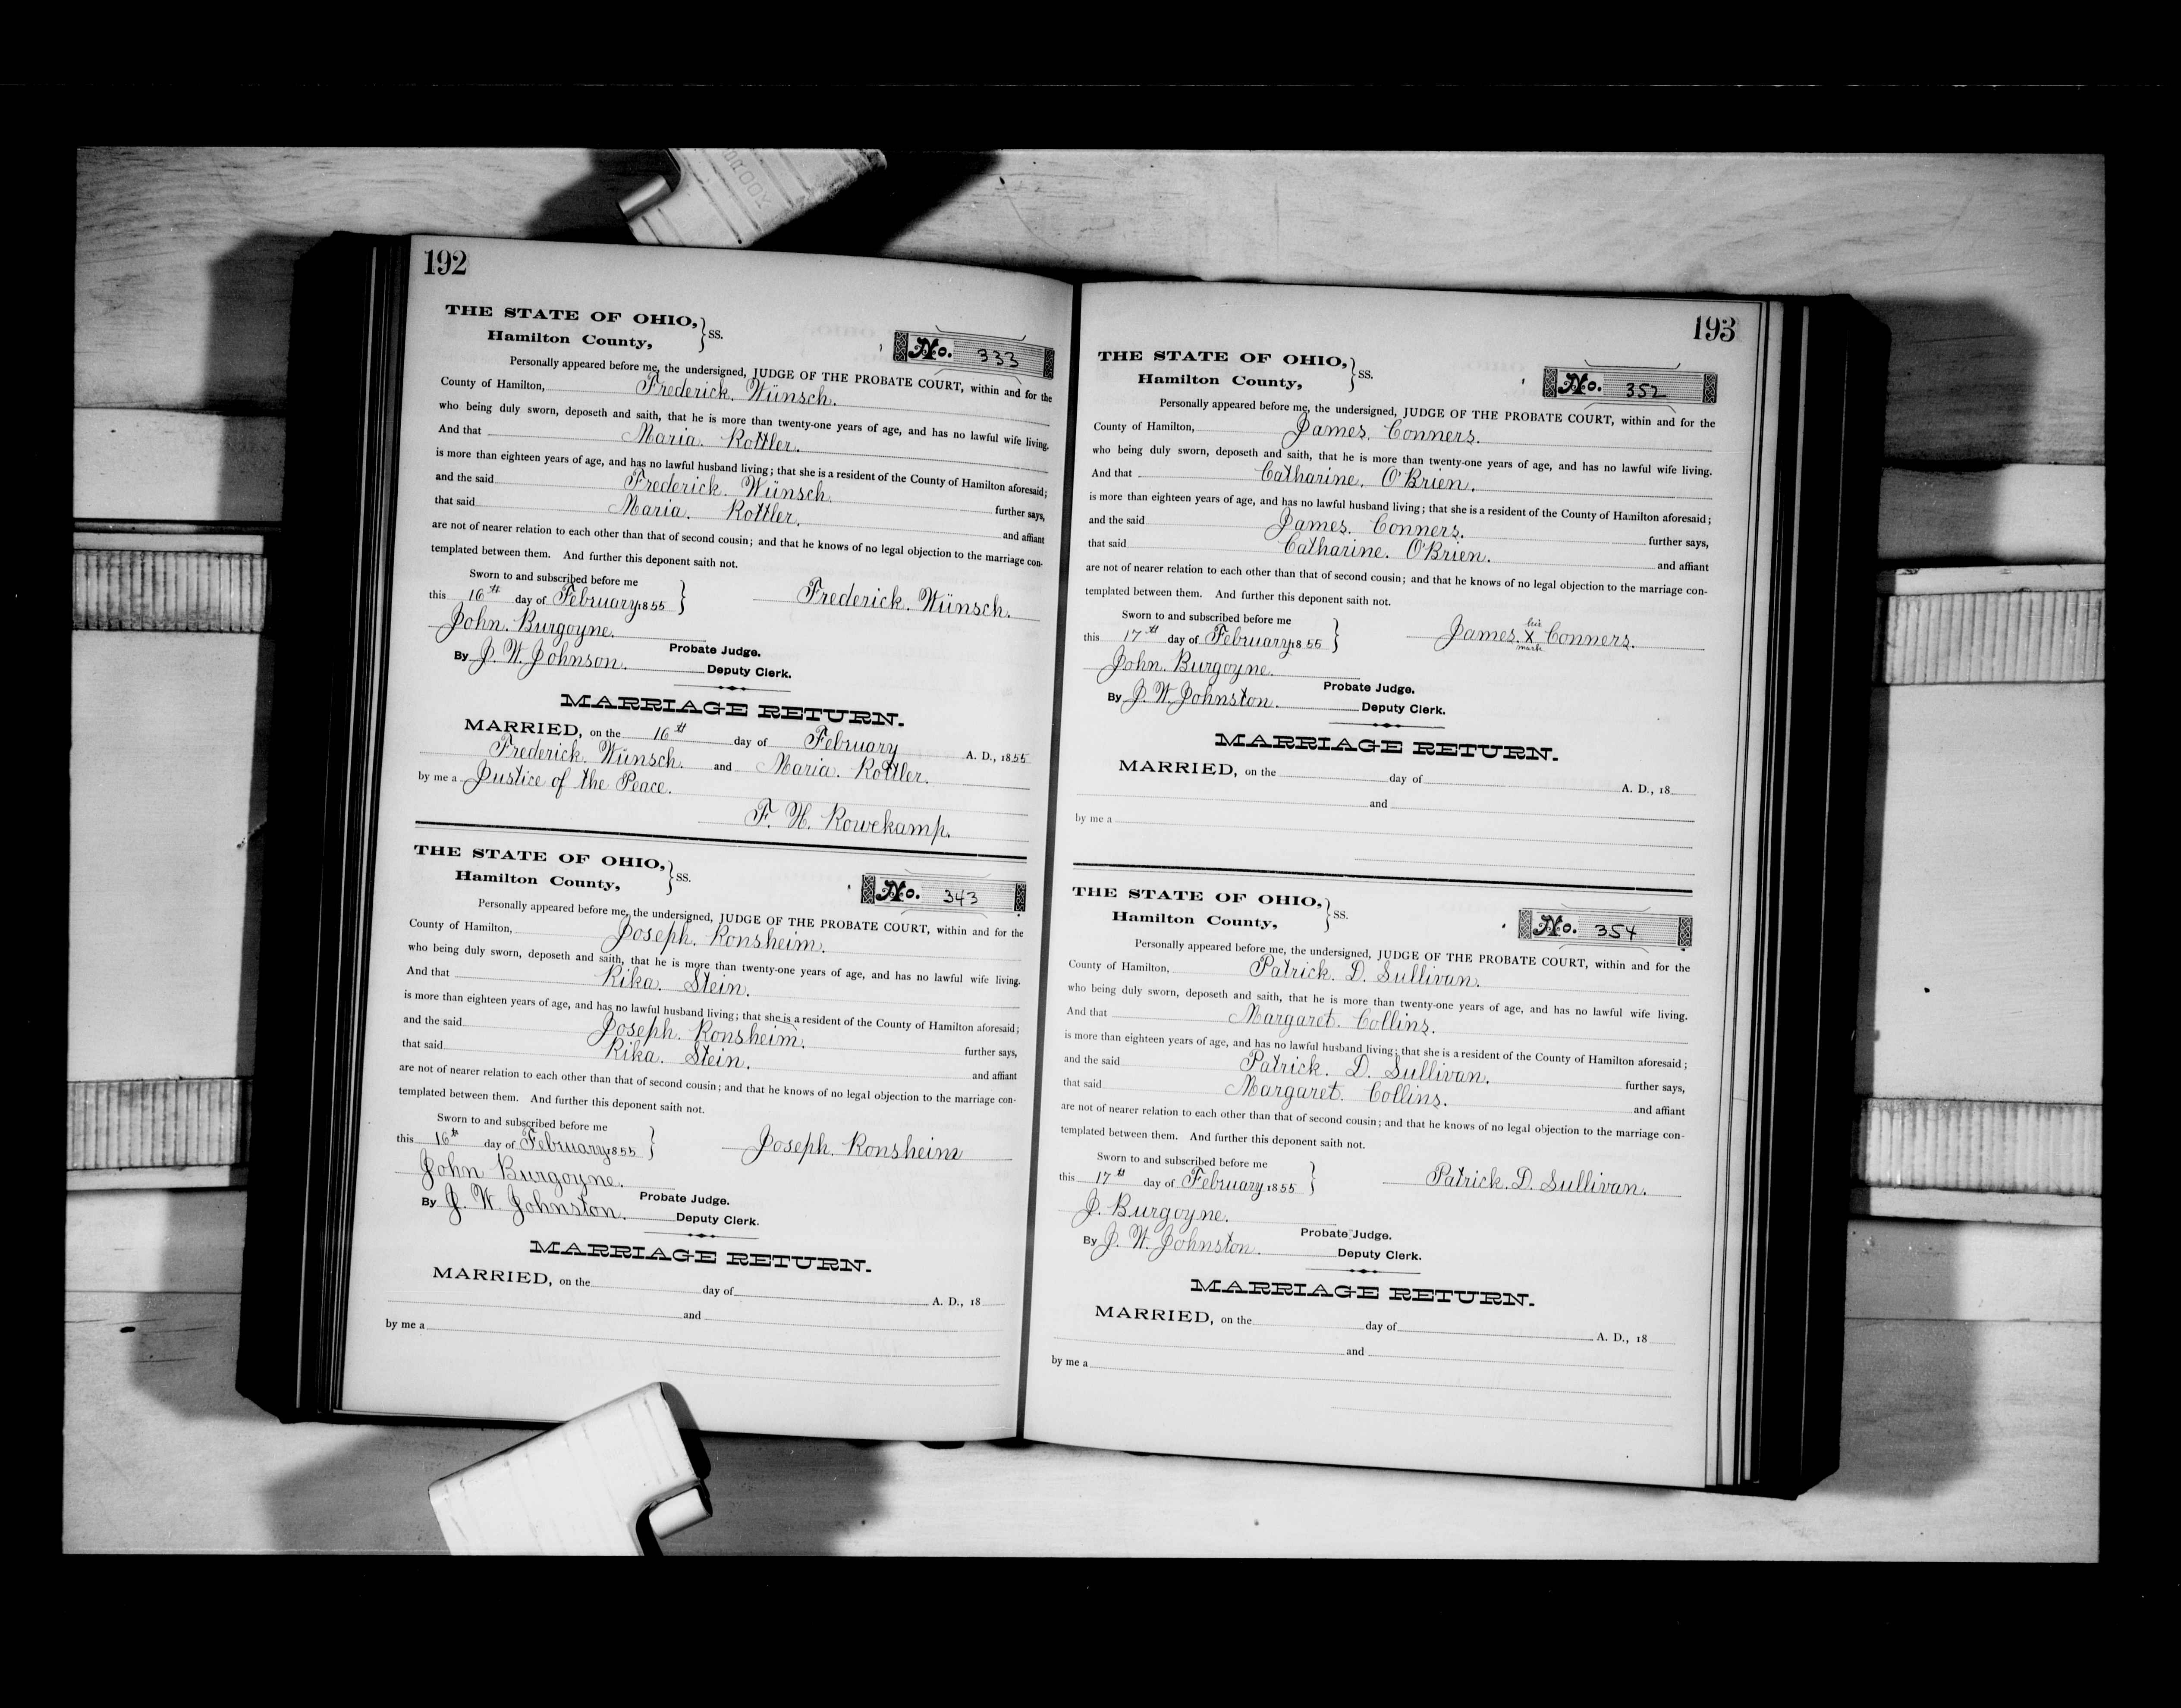 192
THE STATE OF OHIO, } SS.
Hamilton County,
No. 333
Personally appeared before me, the undersigned, JUDGE OF THE PROBATE COURT, within and for the
County of Hamilton, Frederick. Wünsch.
who being duly sworn, deposeth and saith, that he is more than twenty-one years of age, and has no lawful wife living.
And that Maria. Kottler.
is more than eighteen years of age, and has no lawful husband living; that she is a resident of the County of Hamilton aforesaid;
and the said Frederick. Wünsch. further says,
that said Maria. Kottler. and affiant
are not of nearer relation to each other than that of second cousin; and that he knows of no legal objection to the marriage con-
templated between them. And further this deponent saith not.
Sworn to and subscribed before me
this 16th day of February 1855 } Frederick. Wünsch.
John. Burgoyne.
Probate Judge.
By J. W. Johnson. Deputy Clerk.
MARRIAGE RETURN.
MARRIED, on the 16th day of February A. D., 1855
Frederick. Wünsch. and Maria. Kottler.
by me a Justice of the Peace.
F. H. Rowekamp.
THE STATE OF OHIO, } SS.
Hamilton County,
No. 343
Personally appeared before me, the undersigned, JUDGE OF THE PROBATE COURT, within and for the
County of Hamilton, Joseph. Ronsheim.
who being duly sworn, deposeth and saith, that he is more than twenty-one years of age, and has no lawful wife living.
And that Rika. Stein.
is more than eighteen years of age, and has no lawful husband living; that she is a resident of the County of Hamilton aforesaid;
and the said Joseph. Ronsheim. further says,
that said Rika. Stein. and affiant
are not of nearer relation to each other than that of second cousin; and that he knows of no legal objection to the marriage con-
templated between them. And further this deponent saith not.
Sworn to and subscribed before me
this 16th day of February 1855 } Joseph. Ronsheim
John Burgoyne.
Probate Judge.
By J. W. Johnston. Deputy Clerk.
MARRIAGE RETURN.
MARRIED, on the day of A. D., 18
and
by me a
193
THE STATE OF OHIO, } SS.
Hamilton County,
No. 352
Personally appeared before me, the undersigned, JUDGE OF THE PROBATE COURT, within and for the
County of Hamilton, James. Conners.
who being duly sworn, deposeth and saith, that he is more than twenty-one years of age, and has no lawful wife living.
And that Catharine. O'Brien.
is more than eighteen years of age, and has no lawful husband living; that she is a resident of the County of Hamilton aforesaid;
and the said James. Conners. further says,
that said Catharine. O'Brien. and affiant
are not of nearer relation to each other than that of second cousin; and that he knows of no legal objection to the marriage con-
templated between them. And further this deponent saith not.
Sworn to and subscribed before me
his
this 17th day of February 1855 } James. X Conners.
mark
John. Burgoyne.
Probate Judge.
By J. W. Johnston. Deputy Clerk.
MARRIAGE RETURN.
MARRIED, on the day of A. D., 18
and
by me a
THE STATE OF OHIO, } SS.
Hamilton County,
No. 354
Personally appeared before me, the undersigned, JUDGE OF THE PROBATE COURT, within and for the
County of Hamilton, Patrick. D. Sullivan.
who being duly sworn, deposeth and saith, that he is more than twenty-one years of age, and has no lawful wife living.
And that Margaret. Collins.
is more than eighteen years of age, and has no lawful husband living; that she is a resident of the County of Hamilton aforesaid;
and the said Patrick. D. Sullivan. further says,
that said Margaret. Collins. and affiant
are not of nearer relation to each other than that of second cousin; and that he knows of no legal objection to the marriage con-
templated between them. And further this deponent saith not.
Sworn to and subscribed before me
this 17th day of February 1855 } Patrick. D. Sullivan.
J. Burgoyne.
Probate Judge.
By J. W. Johnston. Deputy Clerk.
MARRIAGE RETURN.
MARRIED, on the day of A. D., 18
and
by me a